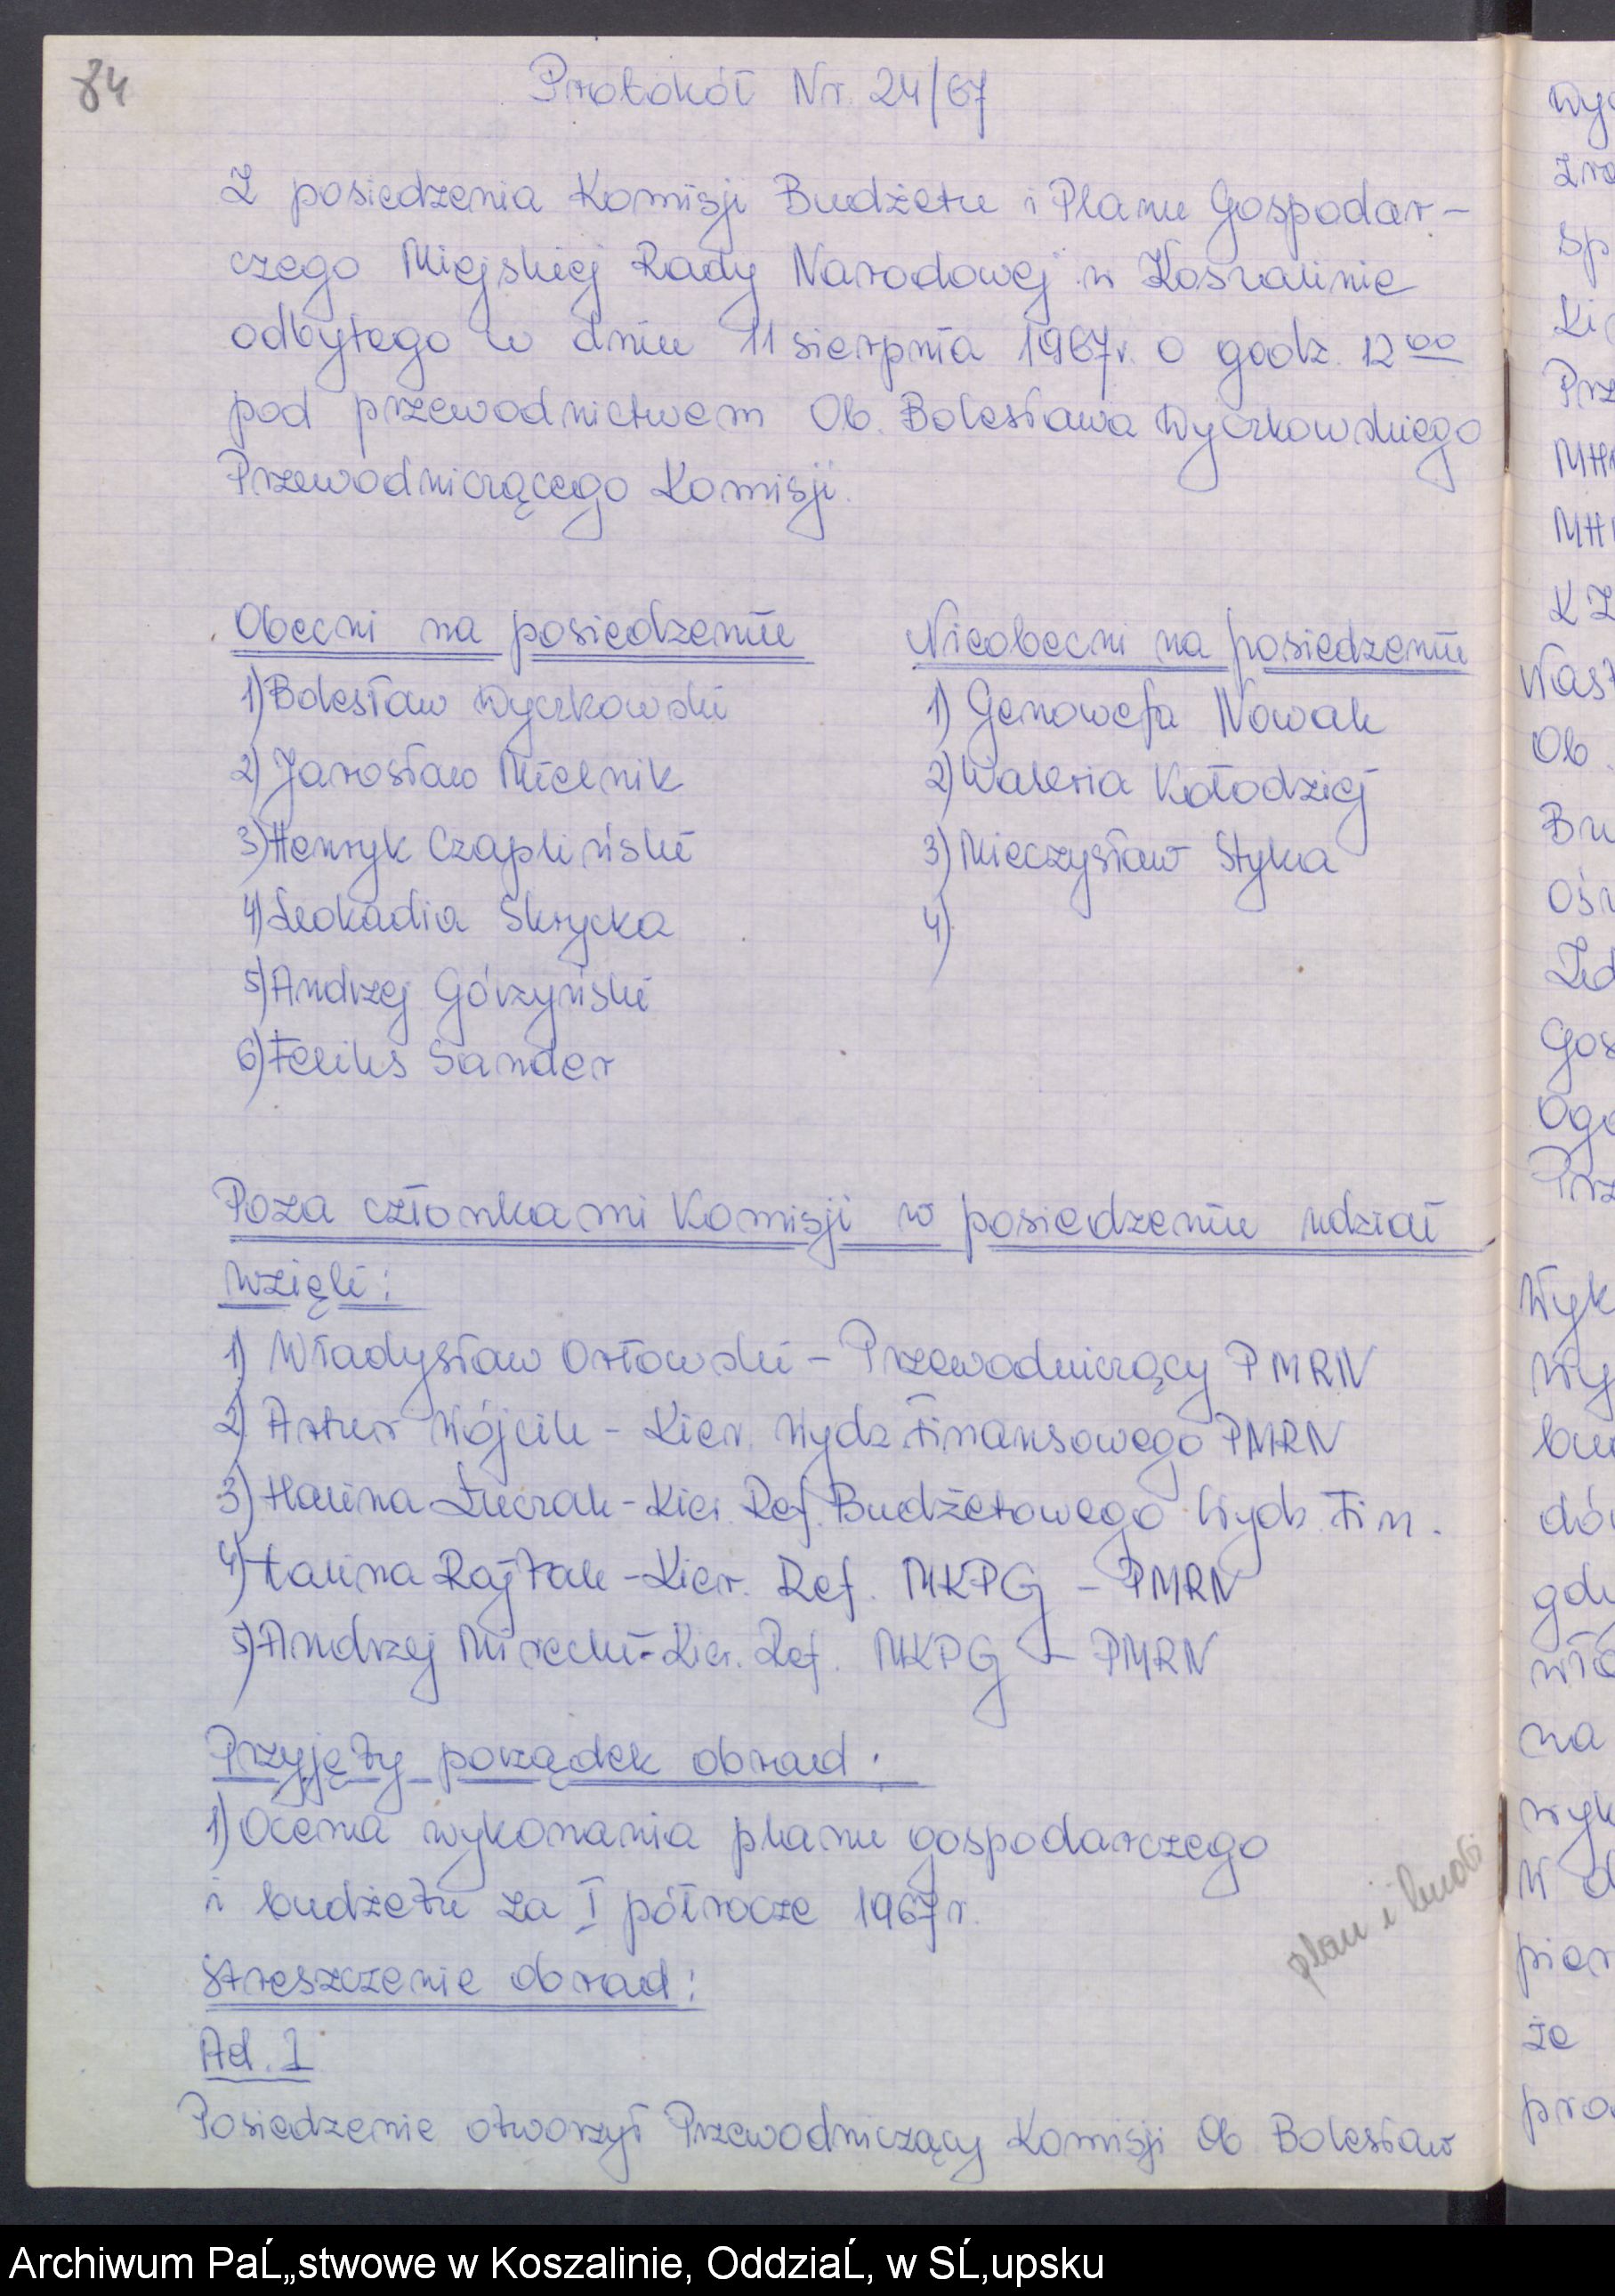 84
Protokół Nr. 24/67
Z posiedzenia Komisji Budżetu i Planu Gospodar-
czego Miejskiej Rady Narodowej w Koszalinie
odbytego w dniu 11 sierpnia 1967r. o godz. 12 00
pod przewodnictwem Ob. Bolesława Wyczkowskiego
Przewodniczącego Komisji.
Obecni na posiedzeniu
1) Bolesław Wyczkowski
2) Jarosław Mielnik
3) Henryk Czapliński
4) Leokadia Skrycka
5) Andrzej Górzyński
6) Feliks Sander
Nieobecni na posiedzeniu
1) Genowefa Nowak
2) Waleria Kołodziej
3) Mieczysław Styka
4)
Poza członkami Komisji w posiedzeniu udział
wzięli:
1) Władysław Orłowski - Przewodniczący PMRN
2) Artur Wójcik - Kier. Wydz. Finansowego PMRN
3) Halina Łuczak - Kier. Ref. Budżetowego Wydz. Fin.
4) Halina Rajtak - Kier. Ref. MKPG - PMRN
5) Andrzej Mirecki - Kier. Ref. MKPG - PMRN
Przyjęty porządek obrad:
1) Ocena wykonania planu gospodarczego
i budżetu za I półrocze 1967 r.
plan i budż
Streszczenie obrad:
Ad. 1
Posiedzenie otworzył Przewodniczący Komisji Ob Bolesław
Archiwum PaĹ„stwowe w Koszalinie, OddziaĹ‚ w SĹ‚upsku